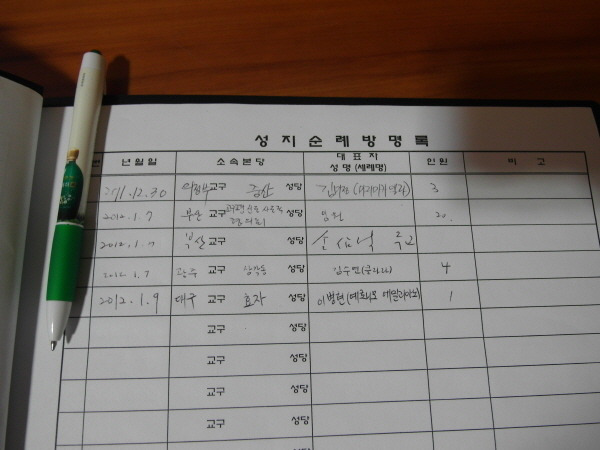 성지순례방명록
년월일 소속본당 대표자 성명(세례명) 인원 비고
2011.12.30 의정부 교구 금산 성당 3
2012.1.7 부산 교구 임원 20.
2012.1.7 부산 교구 성당 손삼석 주교
2012.1.7 광주 교구 성당 김수연 4
2012.1.9 대구 교구 효자 성당 이병현(예로니모 에밀리아노) 1
교구 성당
교구 성당
교구 성당
교구 성당
교구 성당